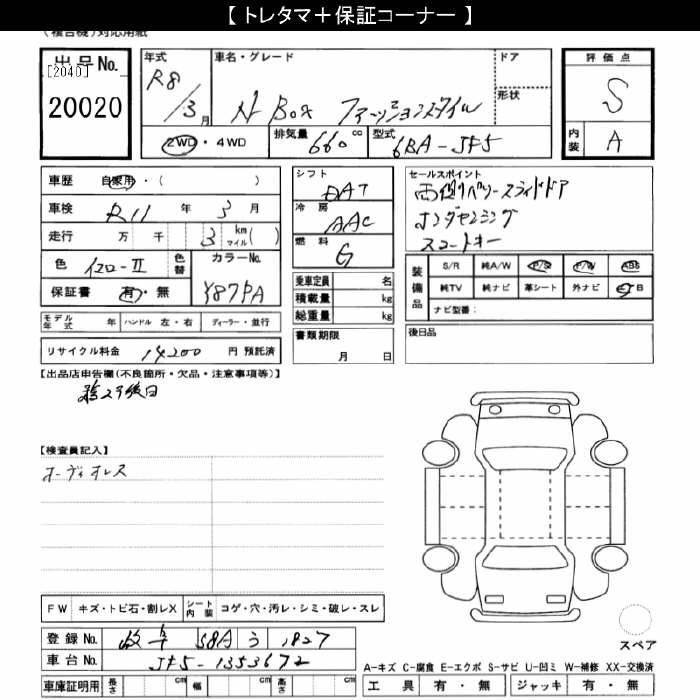 【 トレタマ＋保証コーナー 】
(複合機)対応用紙
出品No.
[2040]
20020
年式
R8/3月
車名・グレード
N Box ファッションスタイル
ドア
形状
2WD・4WD
排気量
660cc
型式
6BA-JF5
評価点
S
内装
A
車歴 自家用・( )
車検 R11 年 3 月
走行 万 千 3 km マイル( )
色 イエロ-Ⅱ
色替
カラーNo.
Y87PA
保証書 有・無
シフト
DAT
冷房
AAC
燃料
G
乗車定員 名
積載量 kg
総重量 kg
セールスポイント
両側パワースライドドア
ホンダセンシング
スマートキー
装備品
S/R 純A/W P/S P/W ABS
純TV 純ナビ 革シート 外ナビ B
ナビ型番:
モデル年式 年 ハンドル 左・右 ディーラー・並行
リサイクル料金 14,200 円 預託済
書類期限
月 日
後日品
【出品店申告欄(不良箇所・欠品・注意事項等)】
後日
【検査員記入】
オーディオレス
FW キズ・トビ石・割レX シート内装 コゲ・穴・汚レ・シミ・破レ・スレ
登録No. 岐阜 58A う 1827
車台No. JF5-1353672
車庫証明用 長さ cm 幅 cm 高さ cm
スペア
A-キズ C-腐食 E-エクボ S-サビ U-凹ミ W-補修 XX-交換済
工具 有・無 ジャッキ 有・無